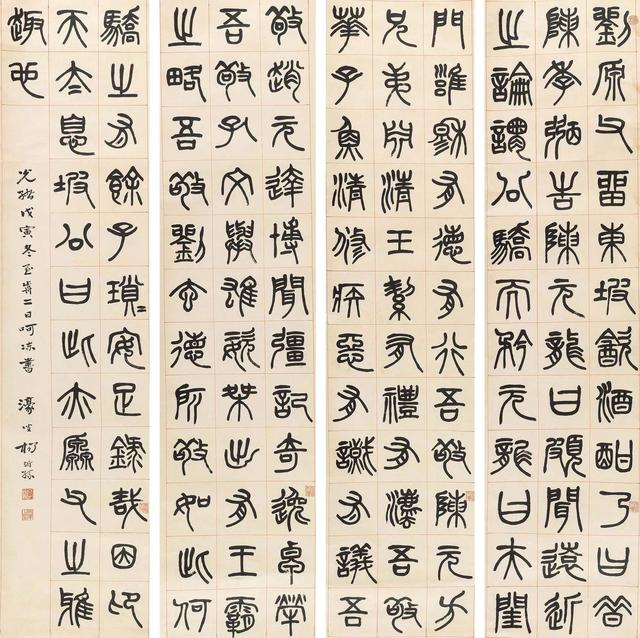 劉原父畱東坡飲酒酣乃曰昔
陳季弼告陳元龍曰頗聞遠近
之論謂公驕而矜元龍曰夫閨
門雍穆有德有行吾敬陳元方
兄弟淵清玉絜有禮有灋吾敬
華子魚清修疾惡有識有義吾
敬趙元達博聞彊記奇逸卓犖
吾敬孔文舉雄姿桀出有王霸
之略吾敬劉玄德所敬如此何
驕之有餘子瑣〻安足錄哉因仰
天太息坡公曰此亦原父之雅
趣也
光緒戊寅冬至前二日呵凍書 濠叟楊沂孫